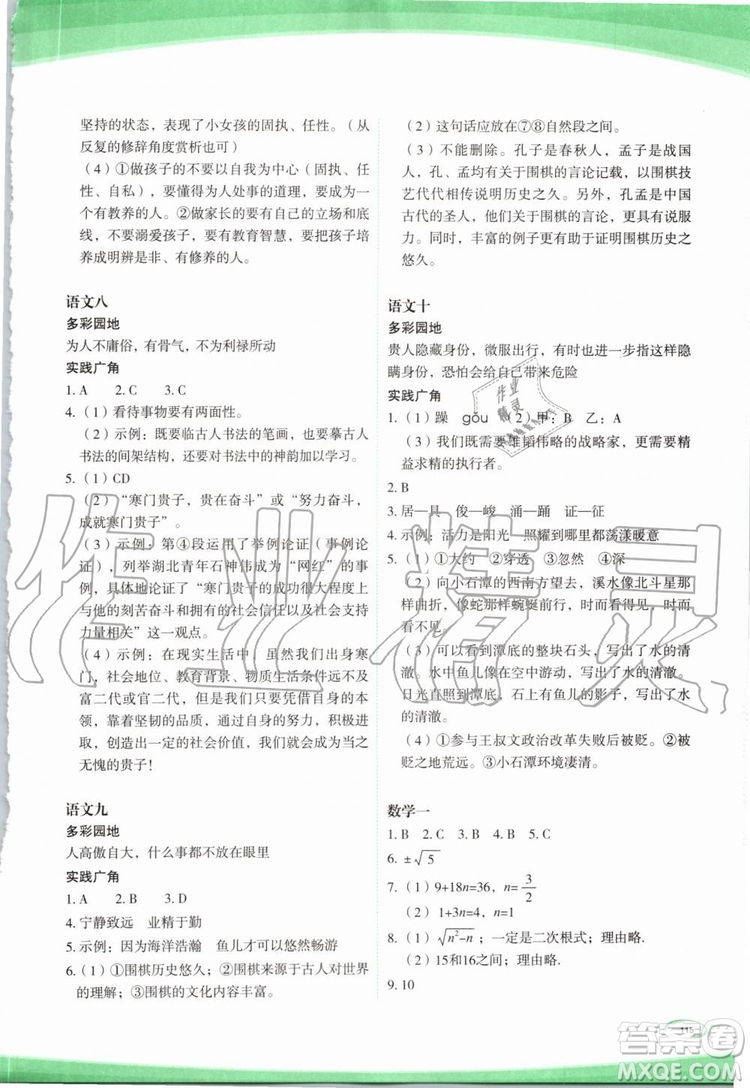 坚持的状态，表现了小女孩的固执、任性。（从
反复的修辞角度赏析也可）
（4）①做孩子的不要以自我为中心（固执、任
性、自私），要懂得为人处事的道理，要成为一
个有教养的人。②做家长的要有自己的立场和底
线，不要溺爱孩子，要有教育智慧，要把孩子培
养成明辨是非、有修养的人。
语文八
多彩园地
为人不庸俗，有骨气，不为利禄所动
实践广角
1. A  2. C  3. C
4.（1）看待事物要有两面性。
（2）示例：既要临古人书法的笔画，也要摹古人
书法的间架结构，还要对书法中的神韵加以学习。
5.（1）CD
（2）“寒门贵子，贵在奋斗”或“努力奋斗，
成就寒门贵子”。
（3）示例：第④段运用了举例论证（事例论
证），列举湖北青年石神伟成为“网红”的事
例，具体地论证了“寒门贵子的成功很大程度上
与他的刻苦奋斗和拥有的社会信任以及社会支持
力量相关”这一观点。
（4）示例：在现实生活中，虽然我们出身寒
门，社会地位、教育背景、物质生活条件远不及
富二代或官二代，但是我们可以凭借自身的本
领，靠着坚韧的品质，通过奋斗，努力、积极进
取，创造出一定的社会价值，我们就会成为真正
无愧的贵子！
语文九
多彩园地
人高傲自大，什么事都不放在眼里
实践广角
1. A  2. B  3. D
4. 宁静致远  业精于勤
5. 示例：因为海洋浩瀚  鱼儿才可以悠然畅游
6.（1）①围棋历史悠久；②围棋来源于古人对世界
的理解；③围棋的文化内容丰富。
（2）这句话应放在⑦⑧自然段之间。
（3）不能删除。孔子是春秋人，孟子是战国
人，孔、孟均有关于围棋的言论记载，以围棋技
艺代代相传说明历史之久。另外，孔孟是中国
古代的圣人，他们关于围棋的言论，更具有说服
力。同时，丰富的例子更有助于证明围棋历史之
悠久。
语文十
多彩园地
贵人隐藏身份，微服出行，有时也进一步指这样隐
瞒身份，恐怕会给自己带来危险
实践广角
1.（1）躁  gǒu （2）甲：B  乙：A
（3）我们既需要雄韬伟略的战略家，更需要精
益求精的执行者。
2. B
3. 居—具  俊—峻  涌—踊  证—征
4. 示例：活力是阳光  照耀到哪里都荡漾暖意
5.（1）①大约  ②穿透  ③忽然  ④深
（2）向小石潭的西南方望去，溪水像北斗星那
样曲折，像蛇那样蜿蜒前行，有时看得见，有时
看不见。
（3）通过看到潭底的整块石头，写出了水的清
澈。水中鱼儿像在空中游动，写出了水的清澈。
日光直照潭底，石上有鱼儿的影子，写出了水
的清澈。
（4）①参与王叔文政治改革失败后被贬。②被
贬之地荒远。③小石潭环境凄清。
数学一
1. B  2. C  3. C  4. B  5. C
6. ±√5
7.（1）9+18n=36，n=3/2
（2）1+3n=4，n=1
8.（1）√(n²−n)；一定是二次根式；理由略.
（2）15和16之间；理由略.
9. 10
115
作业精灵
作业精灵
答案圈
MXQE.COM